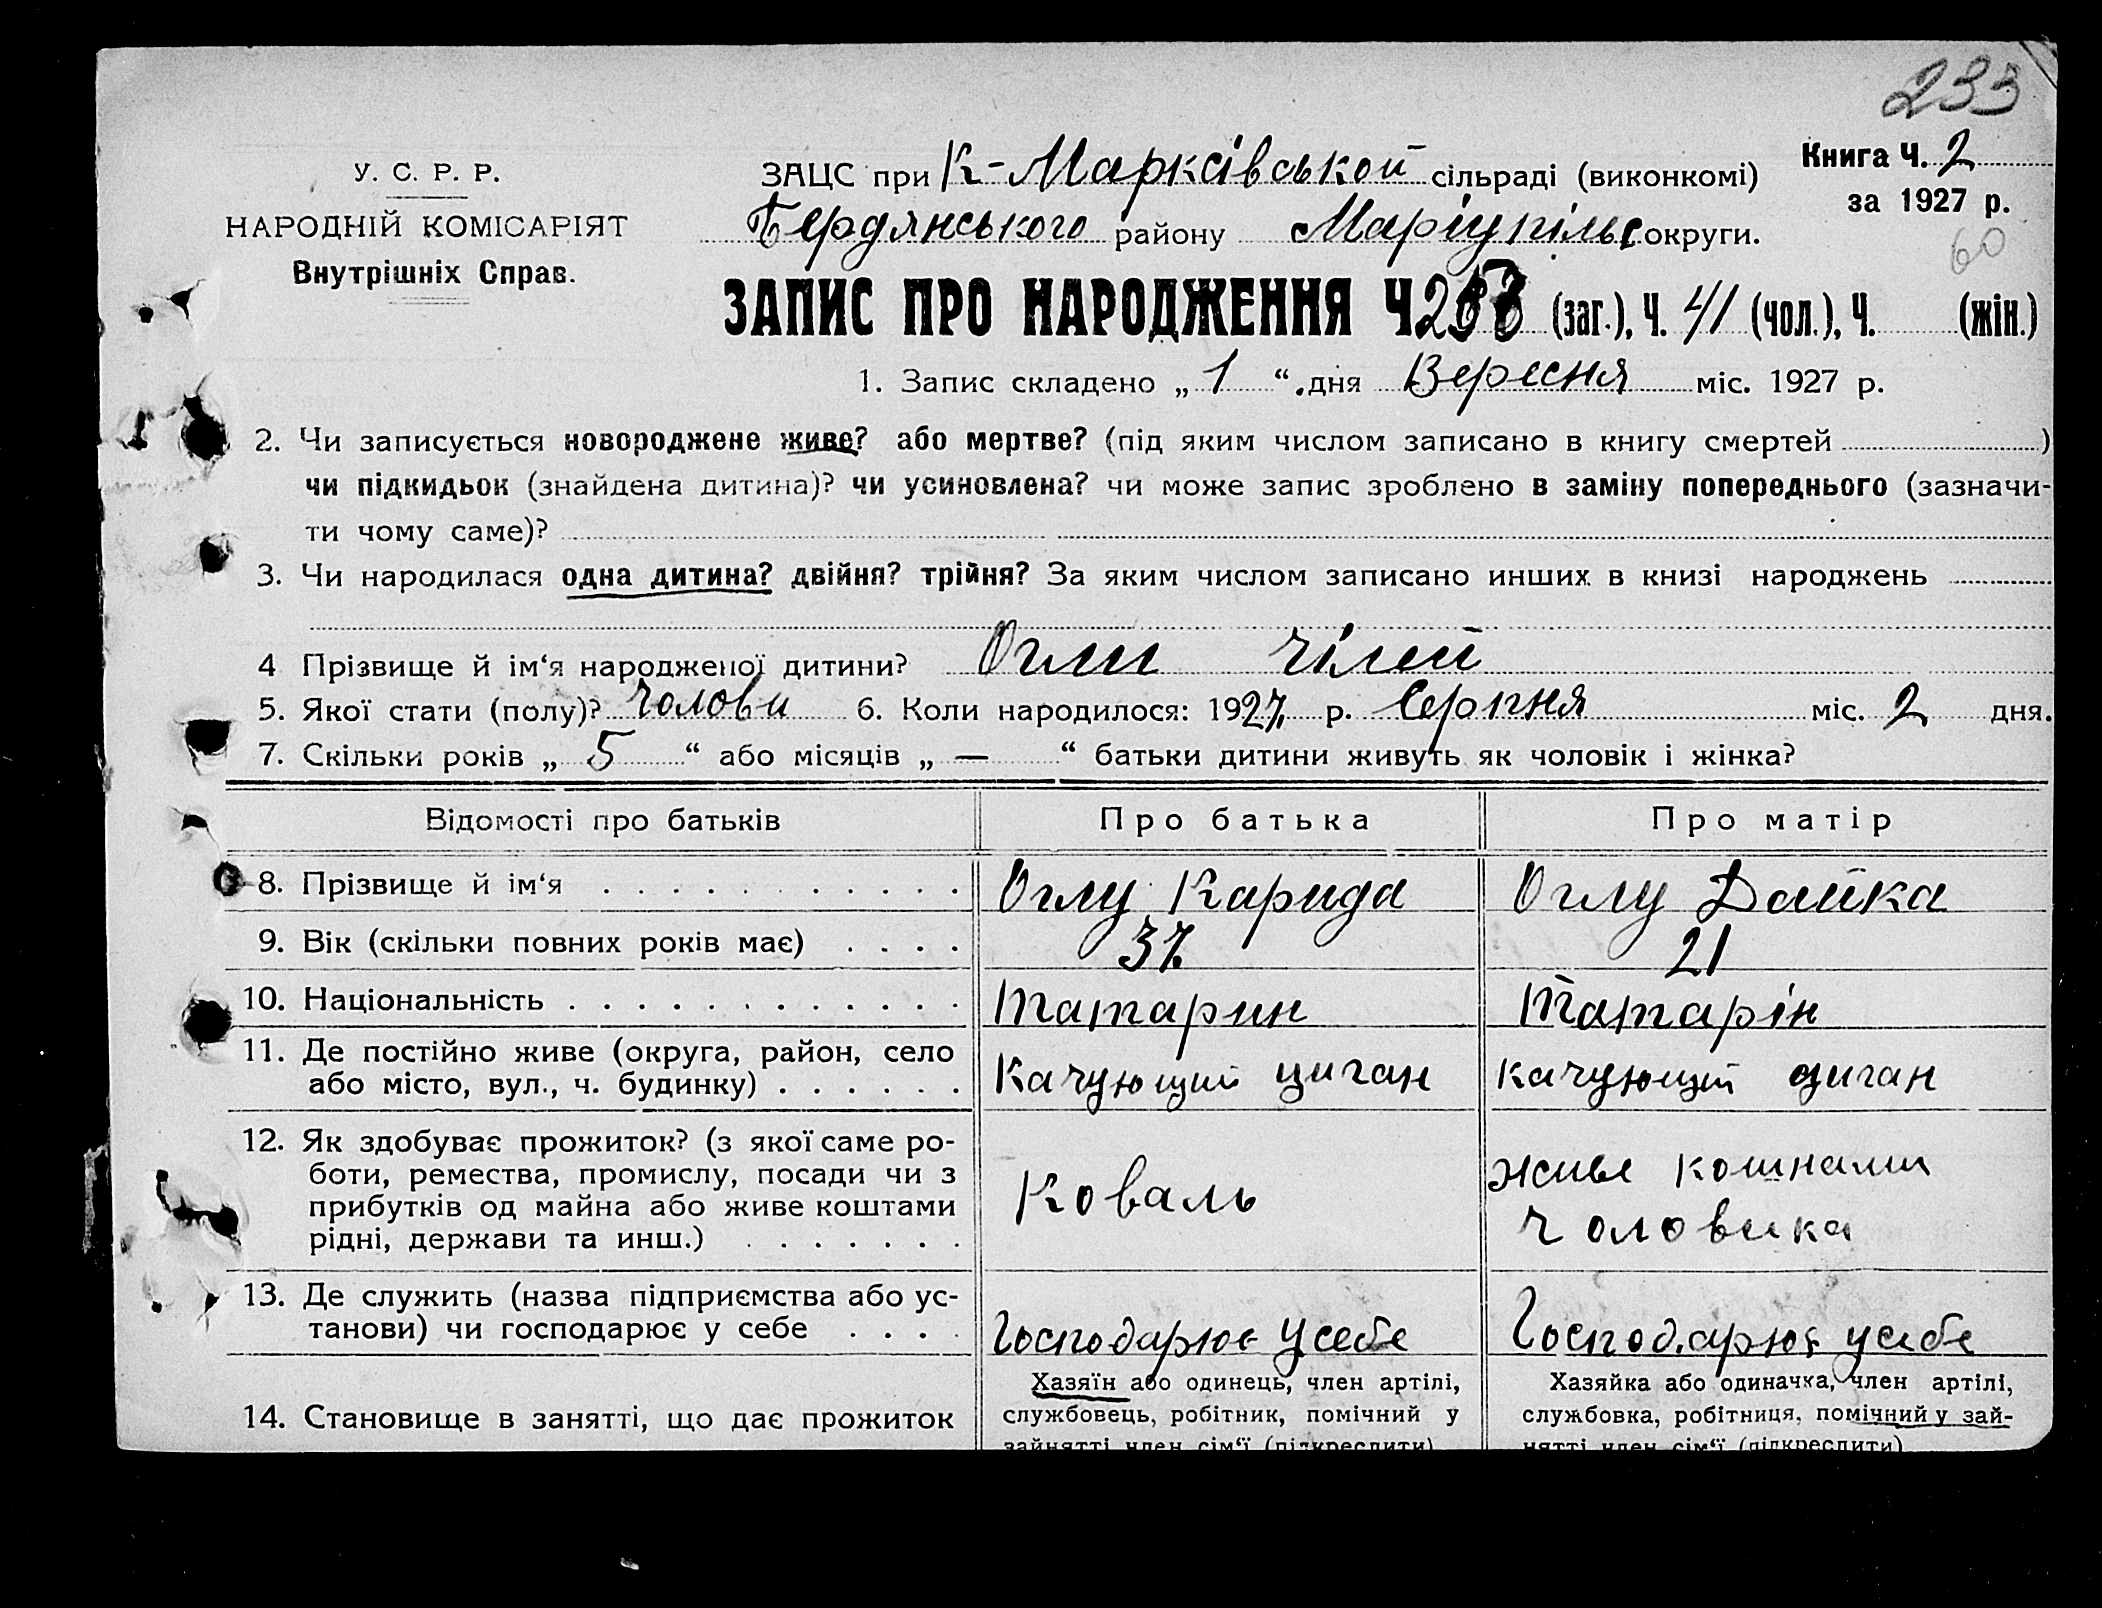 233
У. С. Р. Р.
НАРОДНІЙ КОМІСАРІЯТ
Внутрішніх Справ.
ЗАЦС при К-Марксівської сільраді (виконкомі)
Бердянського району Маріупільс округи.
Книга Ч. 2
за 1927 р.
60
ЗАПИС ПРО НАРОДЖЕННЯ Ч. (заг.), Ч. 41 (чол.), Ч. (жін.)
1. Запис складено „ 1 “ дня Вересня міс. 1927 р.
2. Чи записується новороджене живе? або мертве? (під яким числом записано в книгу смертей )
чи підкидьок (знайдена дитина)? чи усиновлена? чи може запис зроблено в заміну попереднього (зазначи-
ти чому саме)?
3. Чи народилася одна дитина? двійня? трійня? За яким числом записано инших в книзі народжень
4 Прізвище й ім‘я народженої дитини? Огли Чілей
5. Якої стати (полу)? Чолови 6. Коли народилося: 1927 р. Серпня міс. 2 дня.
7. Скільки років „ 5 “ або місяців „ — “ батьки дитини живуть як чоловік і жінка?
Відомості про батьків Про батька Про матір
8. Прізвище й ім‘я . . . . . . . . . . . Оглу Карида Оглу Дайка
9. Вік (скільки повних років має) . . . . 37 21
10. Національність . . . . . . . . . . . . Татарин Татарін
11. Де постійно живе (округа, район, село
або місто, вул., ч. будинку) . . . . . . Качующий циган Качующий циган
12. Як здобуває прожиток? (з якої саме ро-
боти, ремества, промислу, посади чи з
прибутків од майна або живе коштами
рідні, держави та инш.) . . . . . . .
Коваль
живе коштами
Чоловика
13. Де служить (назва підприємства або ус-
танови) чи господарює у себе . . . . Господарює усебе Господарює усебе
14. Становище в занятті, що дає прожиток
Хазяїн або одинець, член артілі,
службовець, робітник, помічний у
зайнятті член сім‘ї (підкреслити)
Хазяйка або одиначка, член артілі,
службовка, робітниця, помічний у зай-
нятті член сім‘ї (підкреслити)